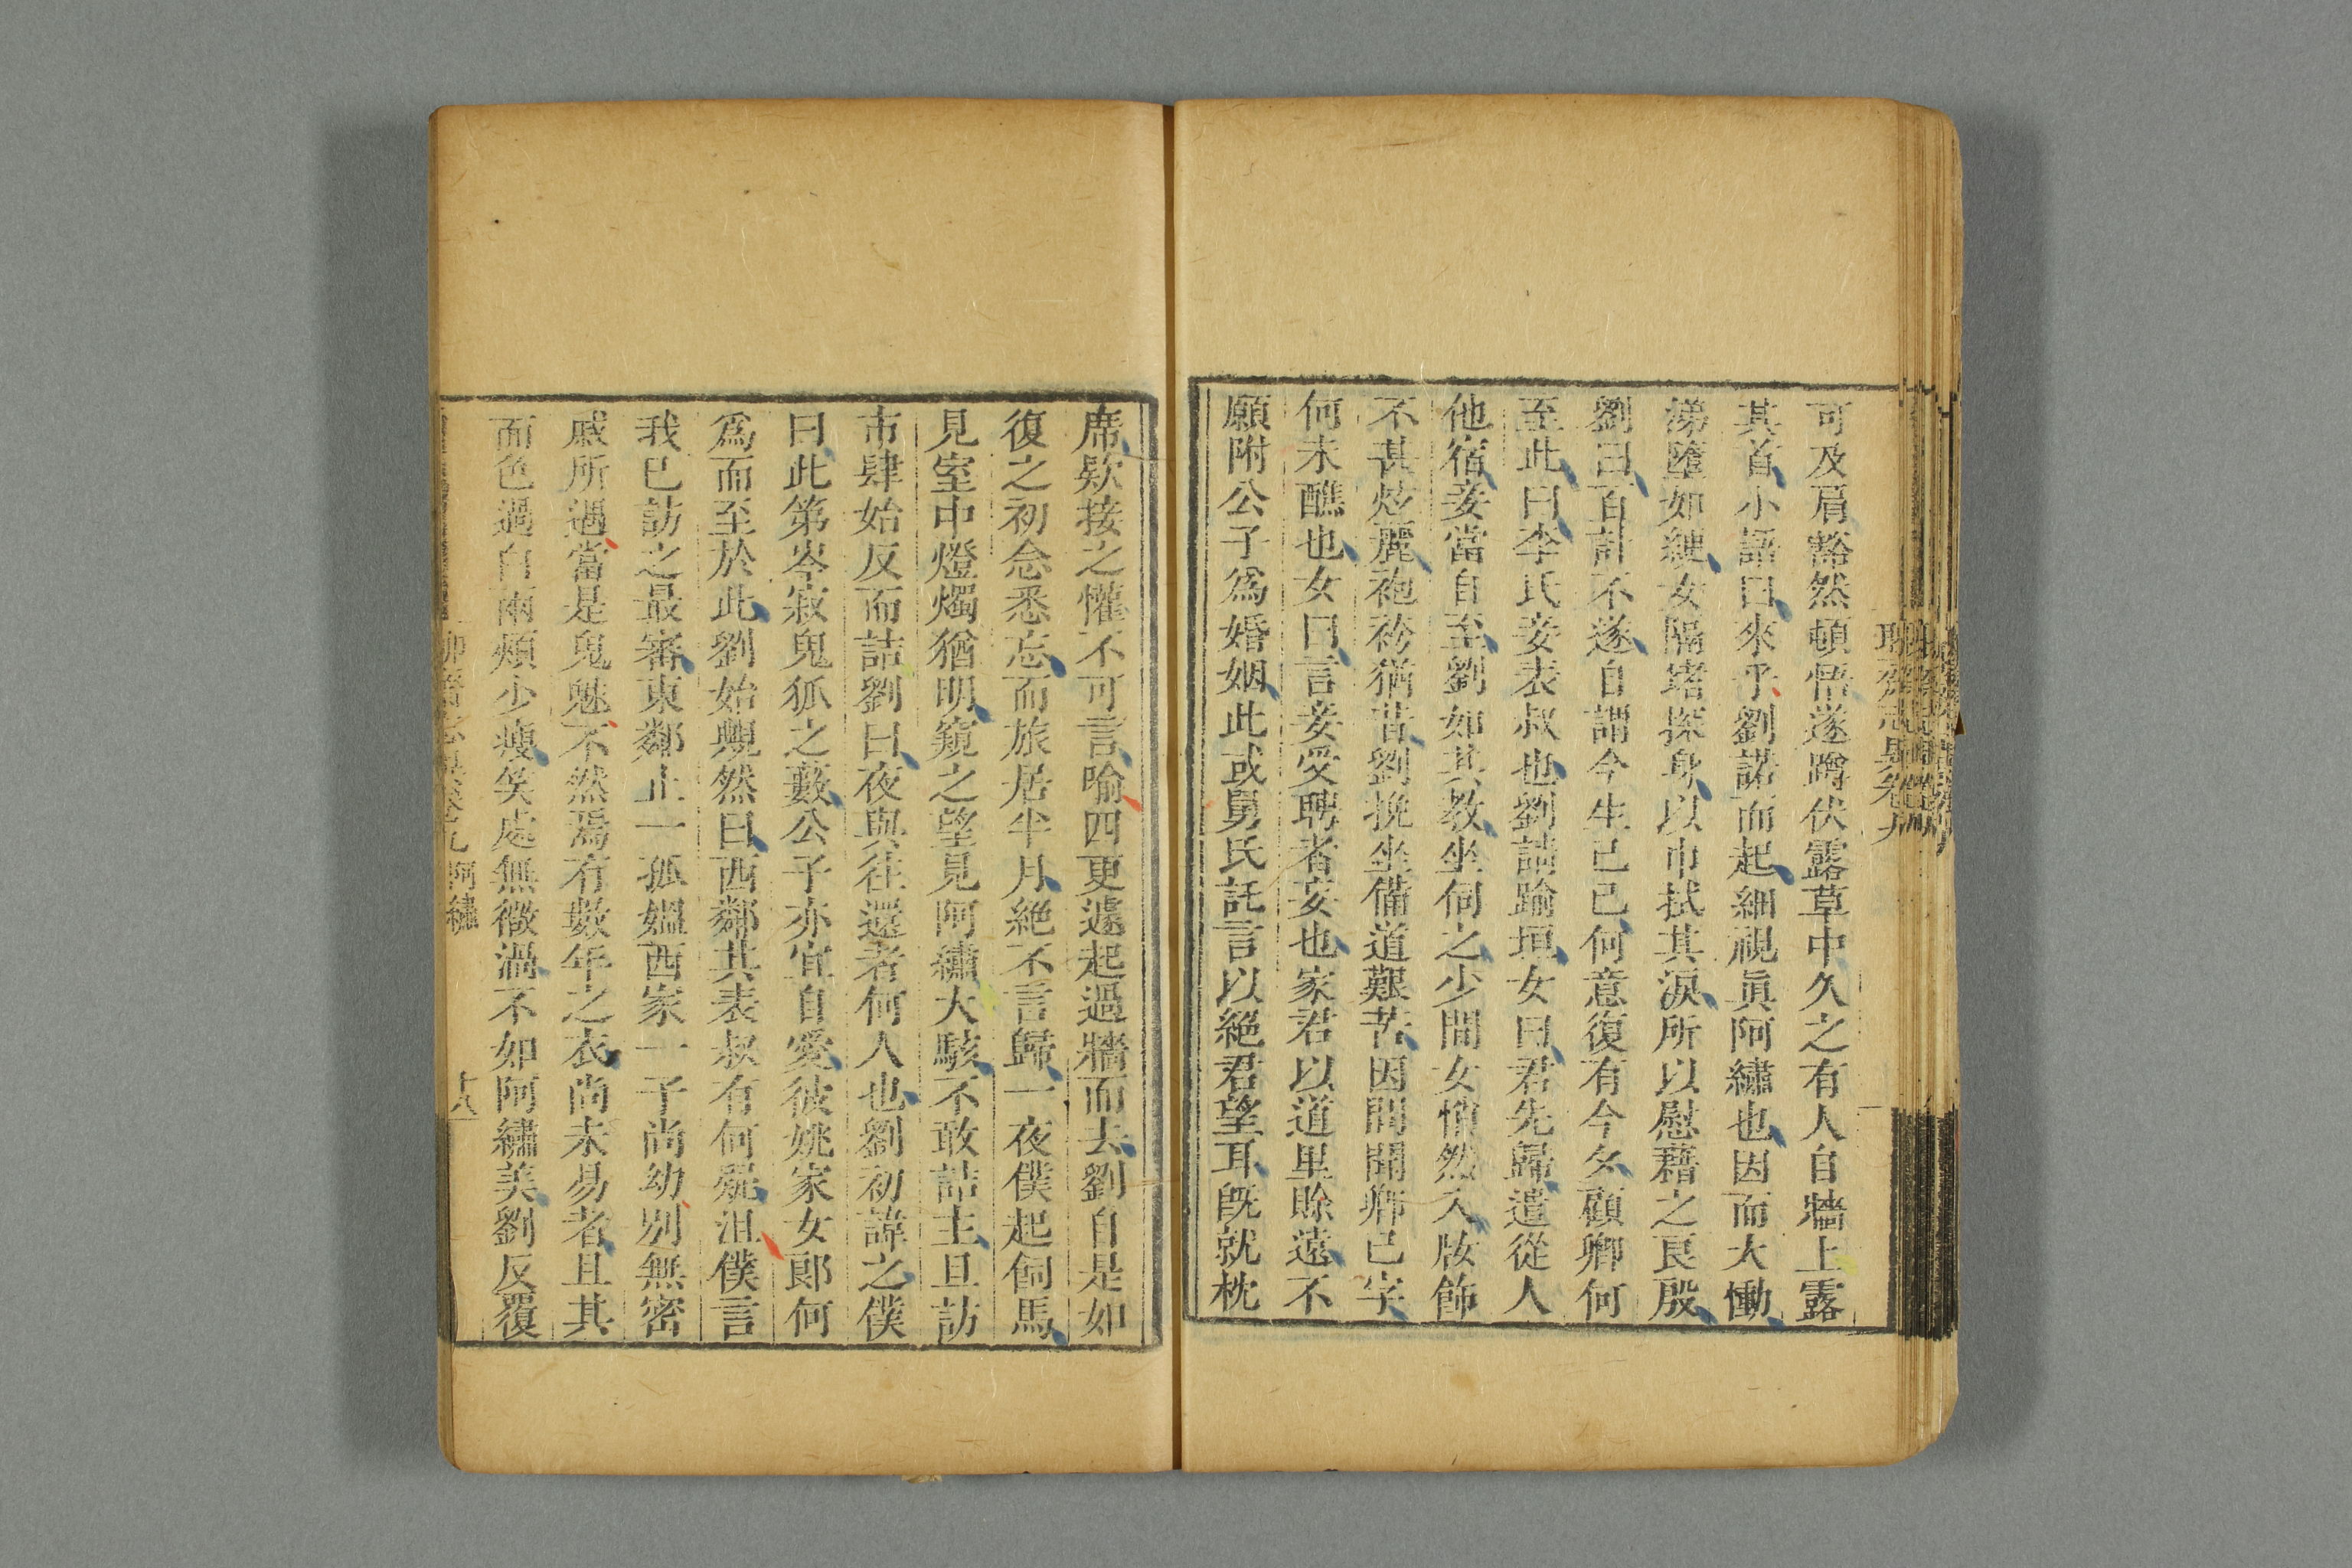 可及肩豁然頓悟遂蹲伏露草中久之有人自牆上露
其首小語曰來乎劉諾而起細視眞阿繡也因而大慟
涕墮如綆女隔堵探身以巾拭其淚所以慰藉之良殷
劉曰百計不遂自謂今生已已何意復有今夕顧卿何
至此曰李氏妾表叔也劉請踰垣女曰君先歸遣從人
他宿妾當自至劉如其教坐伺之少間女悄然入妝飾
不甚炫麗袍袴猶昔劉挽坐備道艱苦因問聞卿已字
何未醮也女曰言妾受聘者妄也家君以道里賒遠不
願附公子爲婚姻此或舅氏託言以絕君望耳旣就枕
席欵接之懽不可言喻四更遽起過牆而去劉自是如
復之初念悉忘而旅居半月絕不言歸一夜僕起飼馬
見室中燈燭猶明窺之望見阿繡大駭不敢詰主旦訪
市肆始反而詰劉曰夜與往還者何人也劉初諱之僕
曰此第岑寂鬼狐之藪公子亦宜自愛彼姚家女郎何
爲而至於此劉始覥然曰西鄰其表叔有何疑沮僕言
我已訪之最審東鄰止一孤媼西家一子尚幼別無密
戚所遇當是鬼魅不然焉有數年之衣尚未易者且其
面色過白兩頰少瘦笑處無微渦不如阿繡美劉反覆
聊齋志異卷九 阿繡 十八